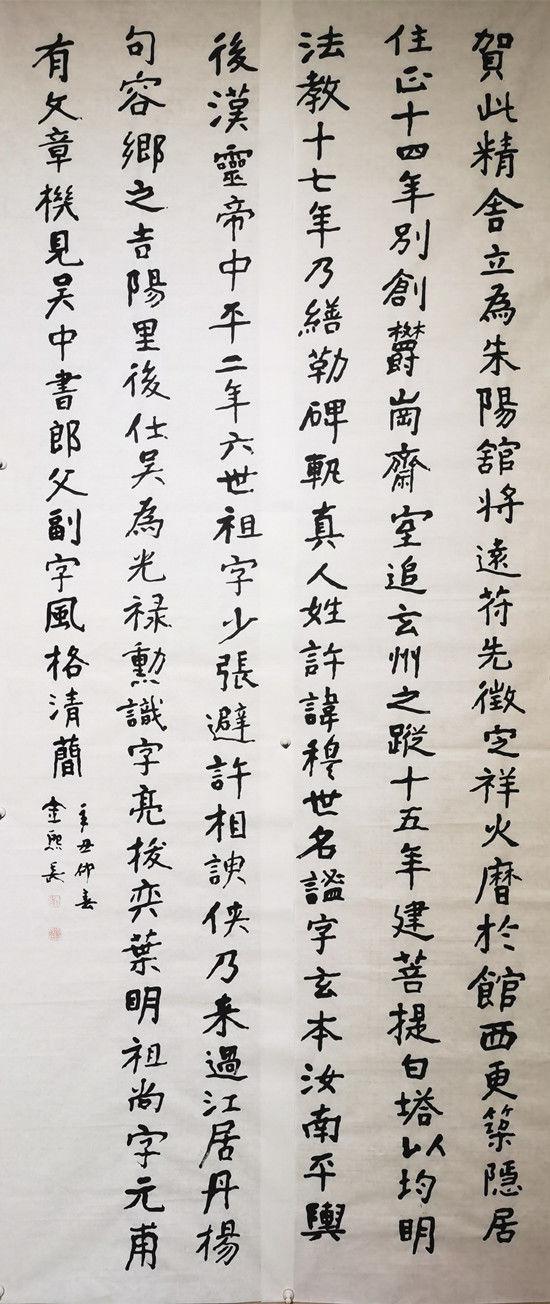 賀此精舍立為朱陽舘將遠苻先徵定祥火曆於館西更築隱居
住止十四年別創欝崗齋室追玄州之蹤十五年建菩提白塔以均明
法教十七年乃繕勒碑軏真人姓許諱穆世名謐字玄本汝南平輿
後漢靈帝中平二年六世祖字少張避許相諛俠乃来過江居丹楊
句容鄉之吉陽里後仕吴為光禄勳識字亮拔奕葉明祖尚字元甫
有文章機見吴中書郎父副字風格清蕳
辛丑仲春
金熙長